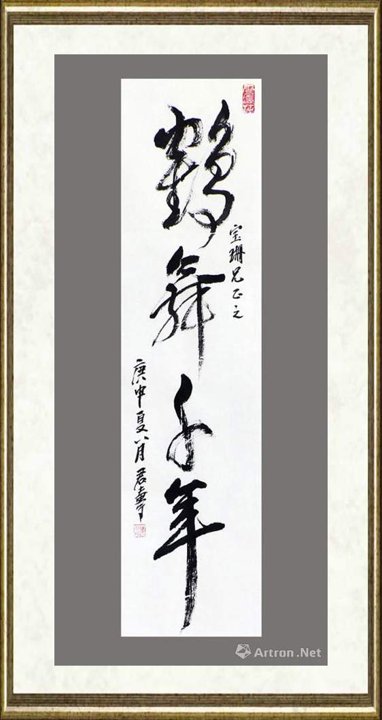 鶴舞千年
宝珊兄正之
庚申夏八月君壽
Artron.Net